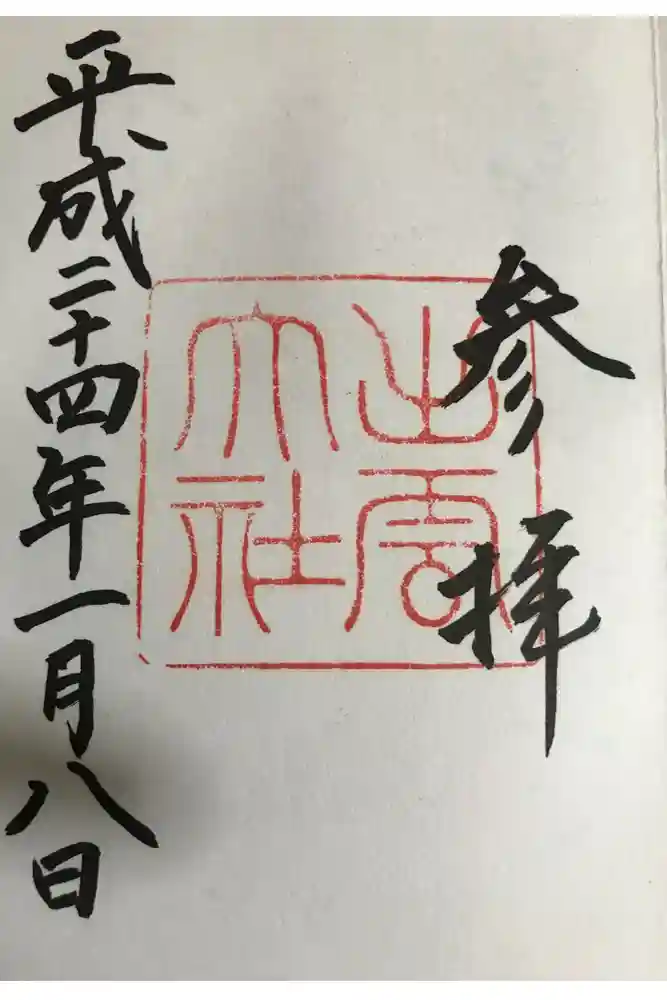 参拝
出雲
大社
平成二十四年一月八日